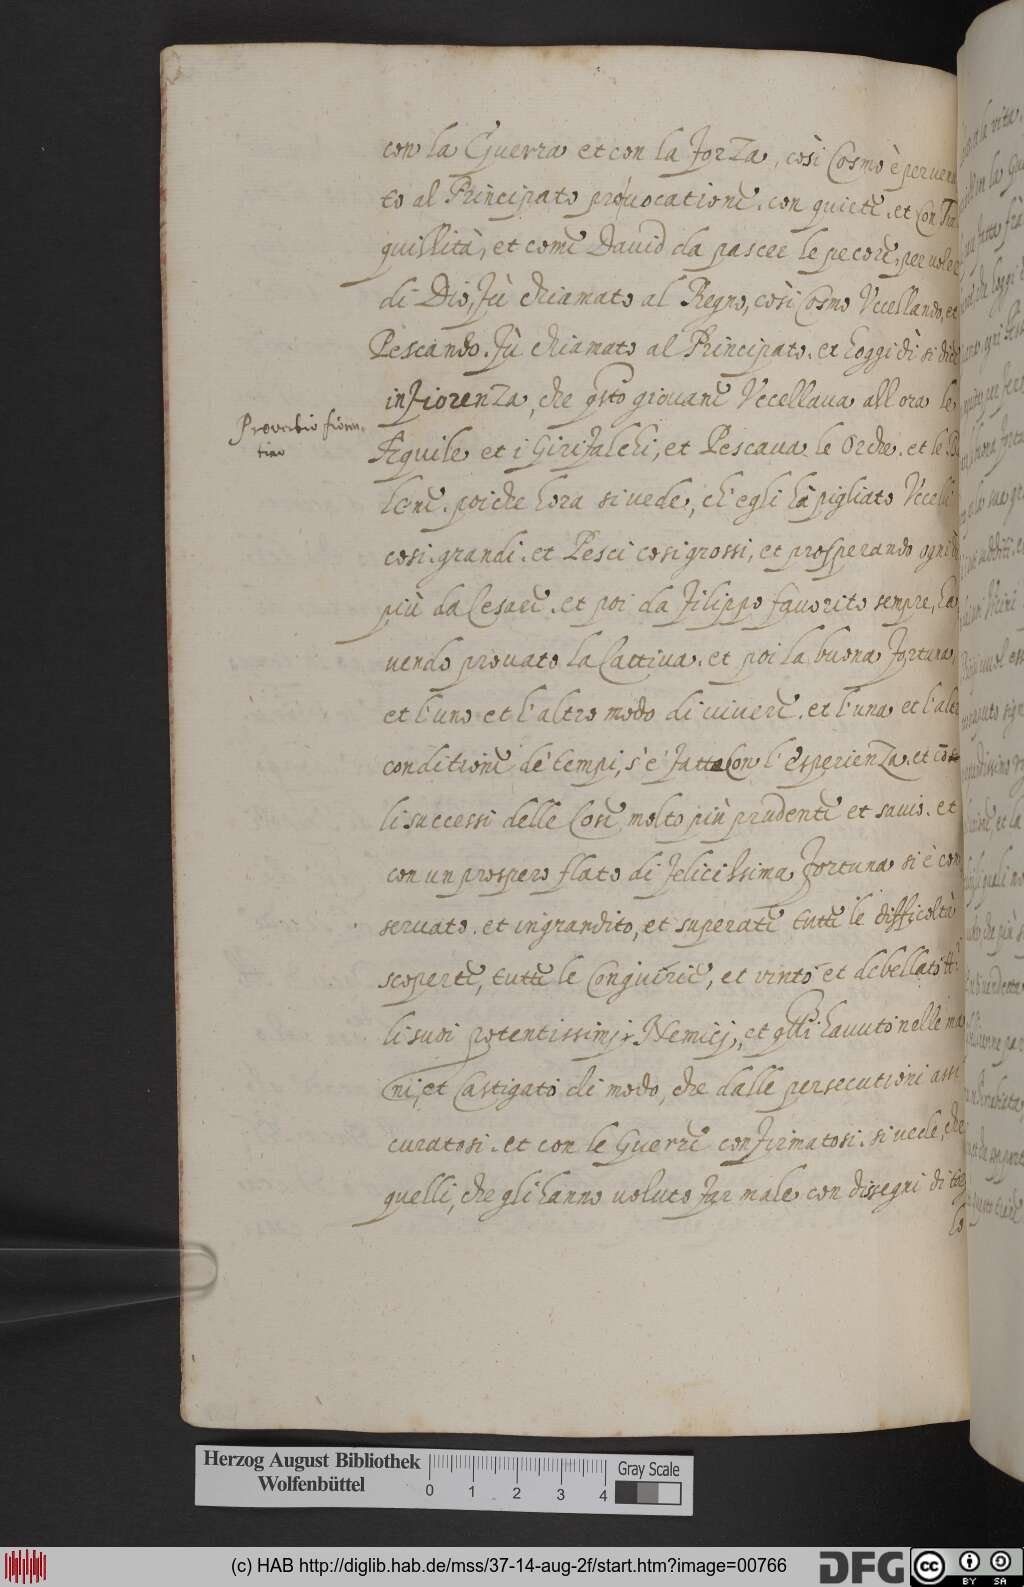 con la Guerra et con la forza, così Cosmo è perven
to al Principato pro uocatione. con quiete. et con Tra
quillità, et come David da pascer le pecore, per voler
di Dio, fù chiamato al Regno, così Cosmo Vccellando, et
Pescando. fù chiamato al Principato. et hoggidì si dice
in fiorenza, che qsto giovane Vccellaua all ora le
Proverbio fioren-
tino
Aquile et i Girifalchi, et Pescaua le Orche. et le Ba
lene. poiche hora si vede, ch'egli hà pigliato Vccelli
cosi grandi. et Pesci cosi grossi, et prosperando ogni dì
più da Cesare. et poi da filippo favorito sempre, ha
uendo prouato la Cattiua. et poi la buona fortuna,
et l'uno et l'altro modo di uiuere. et l'una et l'altr
conditione de' tempi, s'è fatto Con l'esperienza. et cō
li successi delle Cose molto più prudente et savio. et
con un prospero flato di felicissima fortuna si è con
seruato. et ingrandito, et superate tutte le difficoltà
scoperte, tutte le Congiure, et vinto et debellato tt.
li suoi potentissimj Nemicj, et qlli havuto nelle ma
ni, et Castigato di modo, che dalle persecutioni assi
curatosi. et con le Guerre confirmatosi. si vede, che
quelli, che gli hanno uoluto far male con dissegni di tor
lo
Herzog August Bibliothek
Wolfenbüttel
0 1 2 3 4
Gray Scale
(c) HAB http://diglib.hab.de/mss/37-14-aug-2f/start.htm?image=00766
DFG
cc BY SA